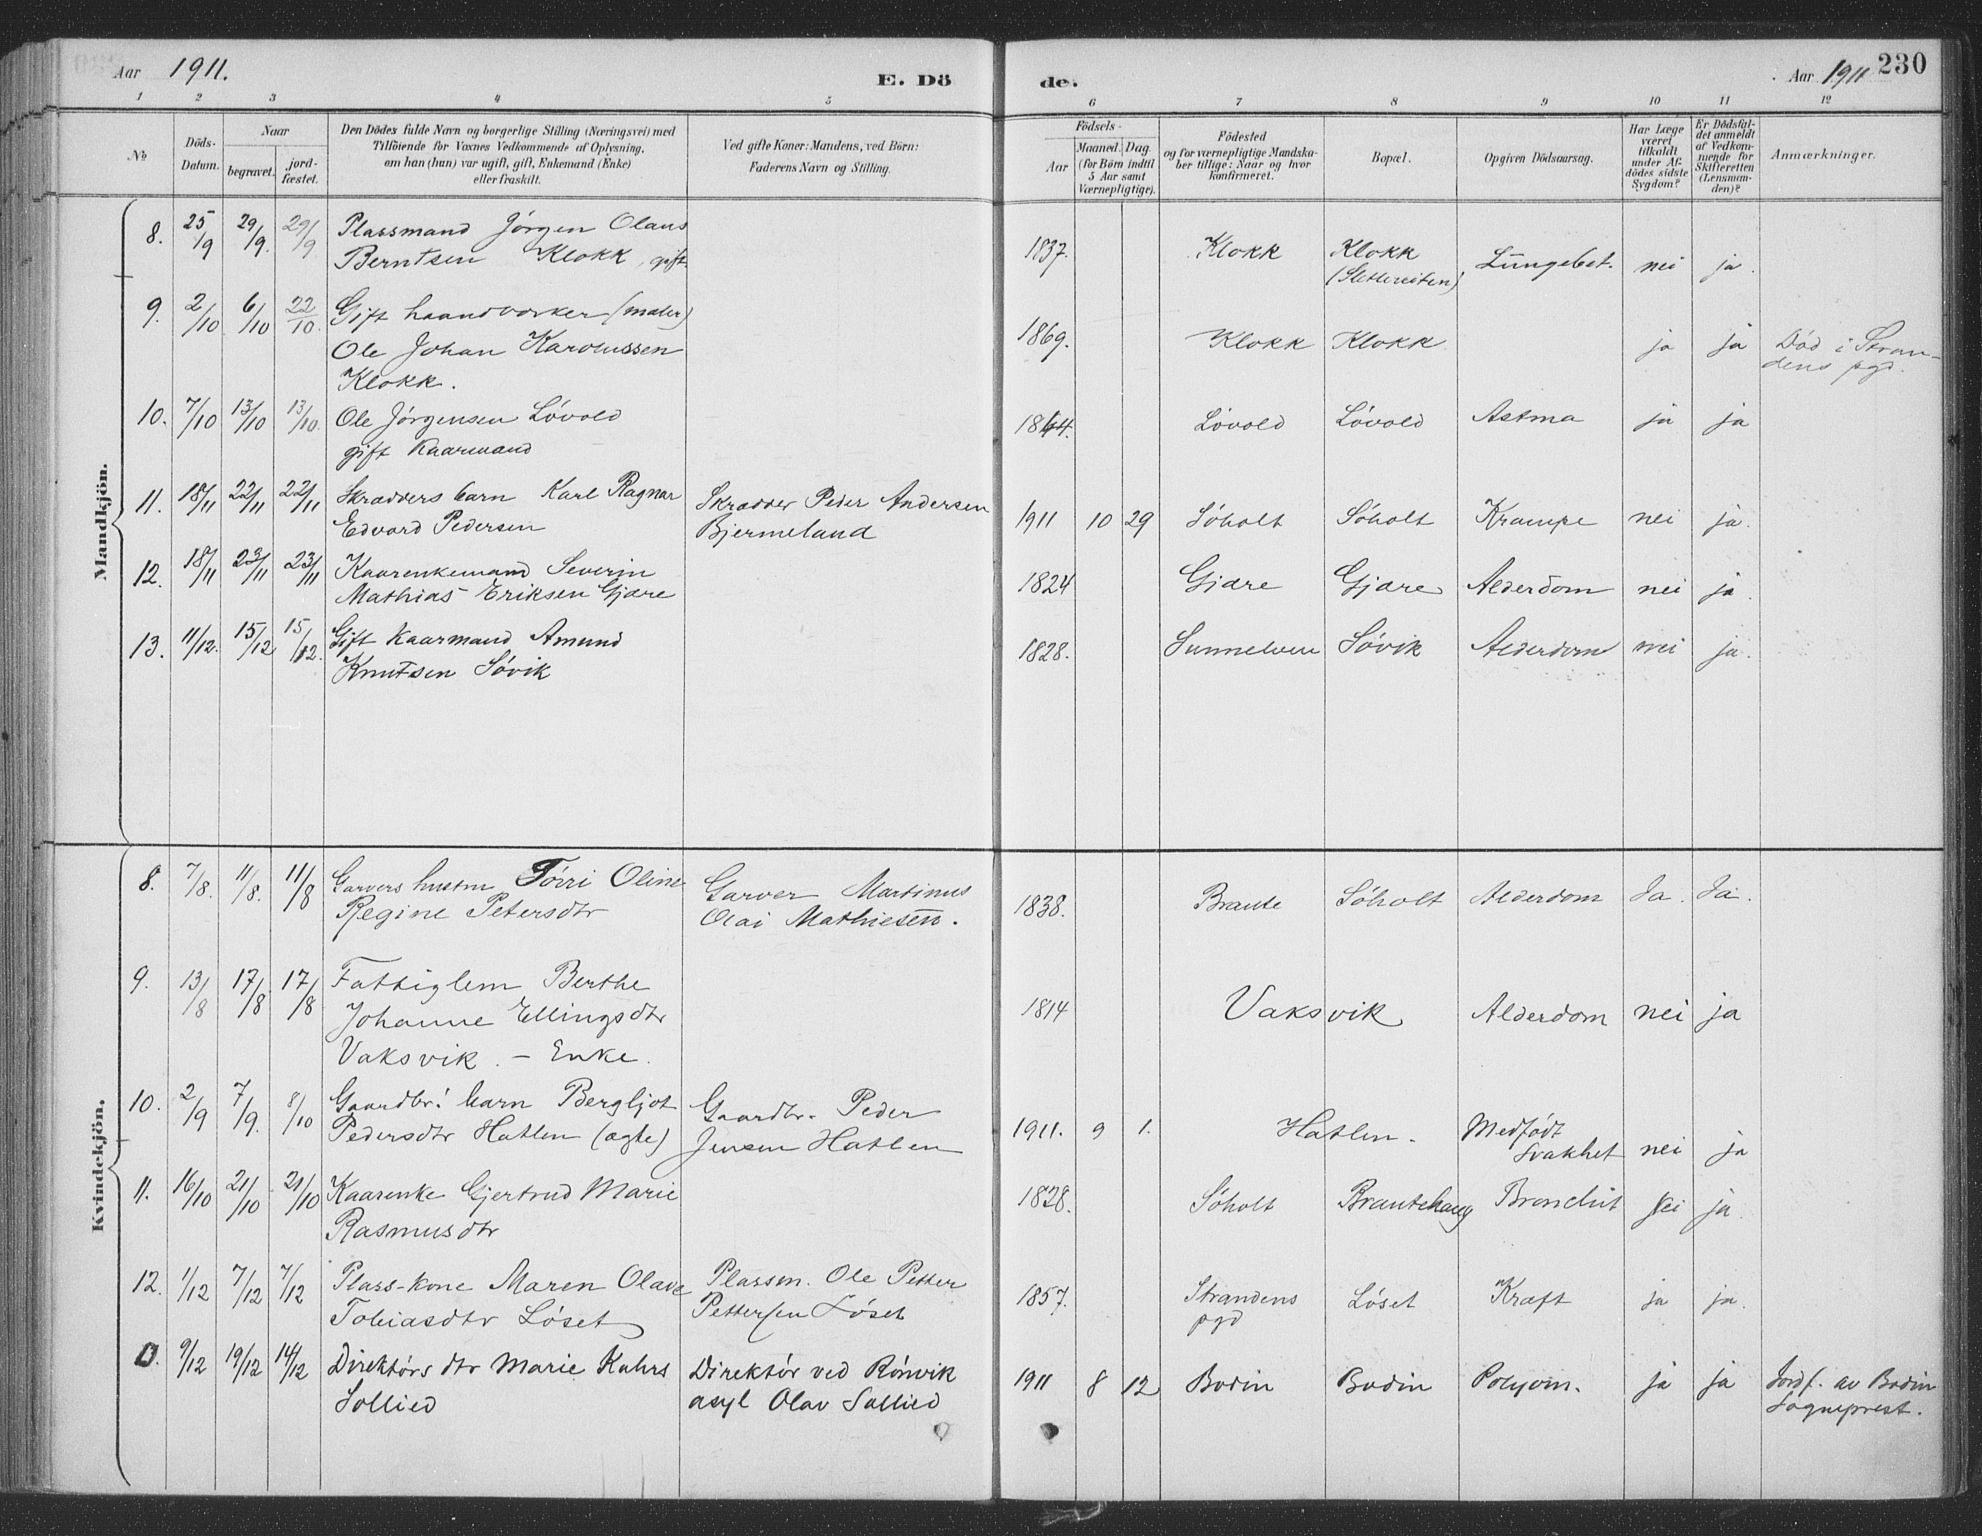 Aar 1911. E. Dö de. Aar 1911 230
1 2 3 4 5 6 7 8 9 10 11 12
No
Döds-Datum.
Naar
begravet.
jord-fæstet.
Den Dödes fulde Navn og borgerlige Stilling (Næringsvei) med
Tilföiende for Voxnes Vedkommende af Oplysning,
om han (hun) var ugift, gift, Enkemand (Enke)
eller fraskilt.
Ved gifte Koner: Mandens, ved Börn:
Faderens Navn og Stilling.
Födsels-
Aar
Maaned. Dag.
(for Börn indtil
5 Aar samt
Værnepligtige).
Födested
og for værnepligtige Mandska-
ber tillige: Naar og hvor
konfirmeret.
Bopæl.
Opgiven Dödsaarsag.
Har Læge
været
tilkaldt
under Af-
dödes sidste
Sygdom?
Er Dödsfal-
det anmeldt
af Vedkom-
mende for
Skifteretten
(Lensman-
den)?
Anmærkninger.
Mandkjön.
8. 25/9 29/9. 29/9 Plassmand Jörgen Olaus 1837. Klokk Klokk Lungebet. nei ja.
Berntsen Klokk, gift. (Slettereiten)
9. 2/10 6/10 22/10. Gift haandverker (maler) 1869. Klokk Klokk ja ja Död i Stran-
Ole Johan Karolussen dens pgd.
Klokk.
10. 7/10 13/10 13/10. Ole Jörgensen Lövold 1844. Lövold Lövold Astma ja ja
gift kaarmand
11. 18/11 22/11 22/11 Skrædders barn Karl Ragnar Skrædder Peder Andersen 1911 10 29 Söholt Söholt Krampe nei ja.
Edvard Pedersen Bjermeland
12. 18/11 23/11 23/11 Kaarenkemand Severin 1824 Gjære Gjære Alderdom nei ja.
Mathias Eriksen Gjære
13. 11/12. 15/12 15/12. Gift kaarmand Amund 1828. Sunnelven Sövik Alderdom nei ja.
Knutsen Sövik
Kvindekjön.
8. 7/8. 11/8. 11/8 Garvers hustru Törri Oline Garver Martinus 1838. Braute Söholt Alderdom Ja. Ja.
Regine Petersdtr Olai Mathiesen.
9. 13/8 17/8 17/8 Fattiglem Berthe 1814 Vaksvik Alderdom nei ja
Johanne Ellingsdtr
Vaksvik. – Enke.
10. 2/9 7/9. 8/10 Gaardbr. barn Bergljot Gaardbr. Peder 1911. 9 1. Hatlen. Medfödt nei ja
Pedersdtr Hatlen (ægte) Jensen Hatlen Svakhet
11. 16/10 21/10 21/10 Kaarenke Gjertrud Marie 1828. Söholt Brautehaug Bronchit ja.
Rasmusdtr
12. 1/12 7/12 7/12 Plass-kone Maren Olave Plassm. Ole Petter 1857. Strandens Löset Kræft ja ja.
Tobiasdtr Löset Pettersen Löset pgd
0. 9/12 19/12 14/12 Direktörs dtr Marie Kahrs Direktör ved Rönvik 1911 8 12 Bodin Bodin ja ja Jordf. av Bodin
Sollied asyl Olav Sollied Sogneprest.